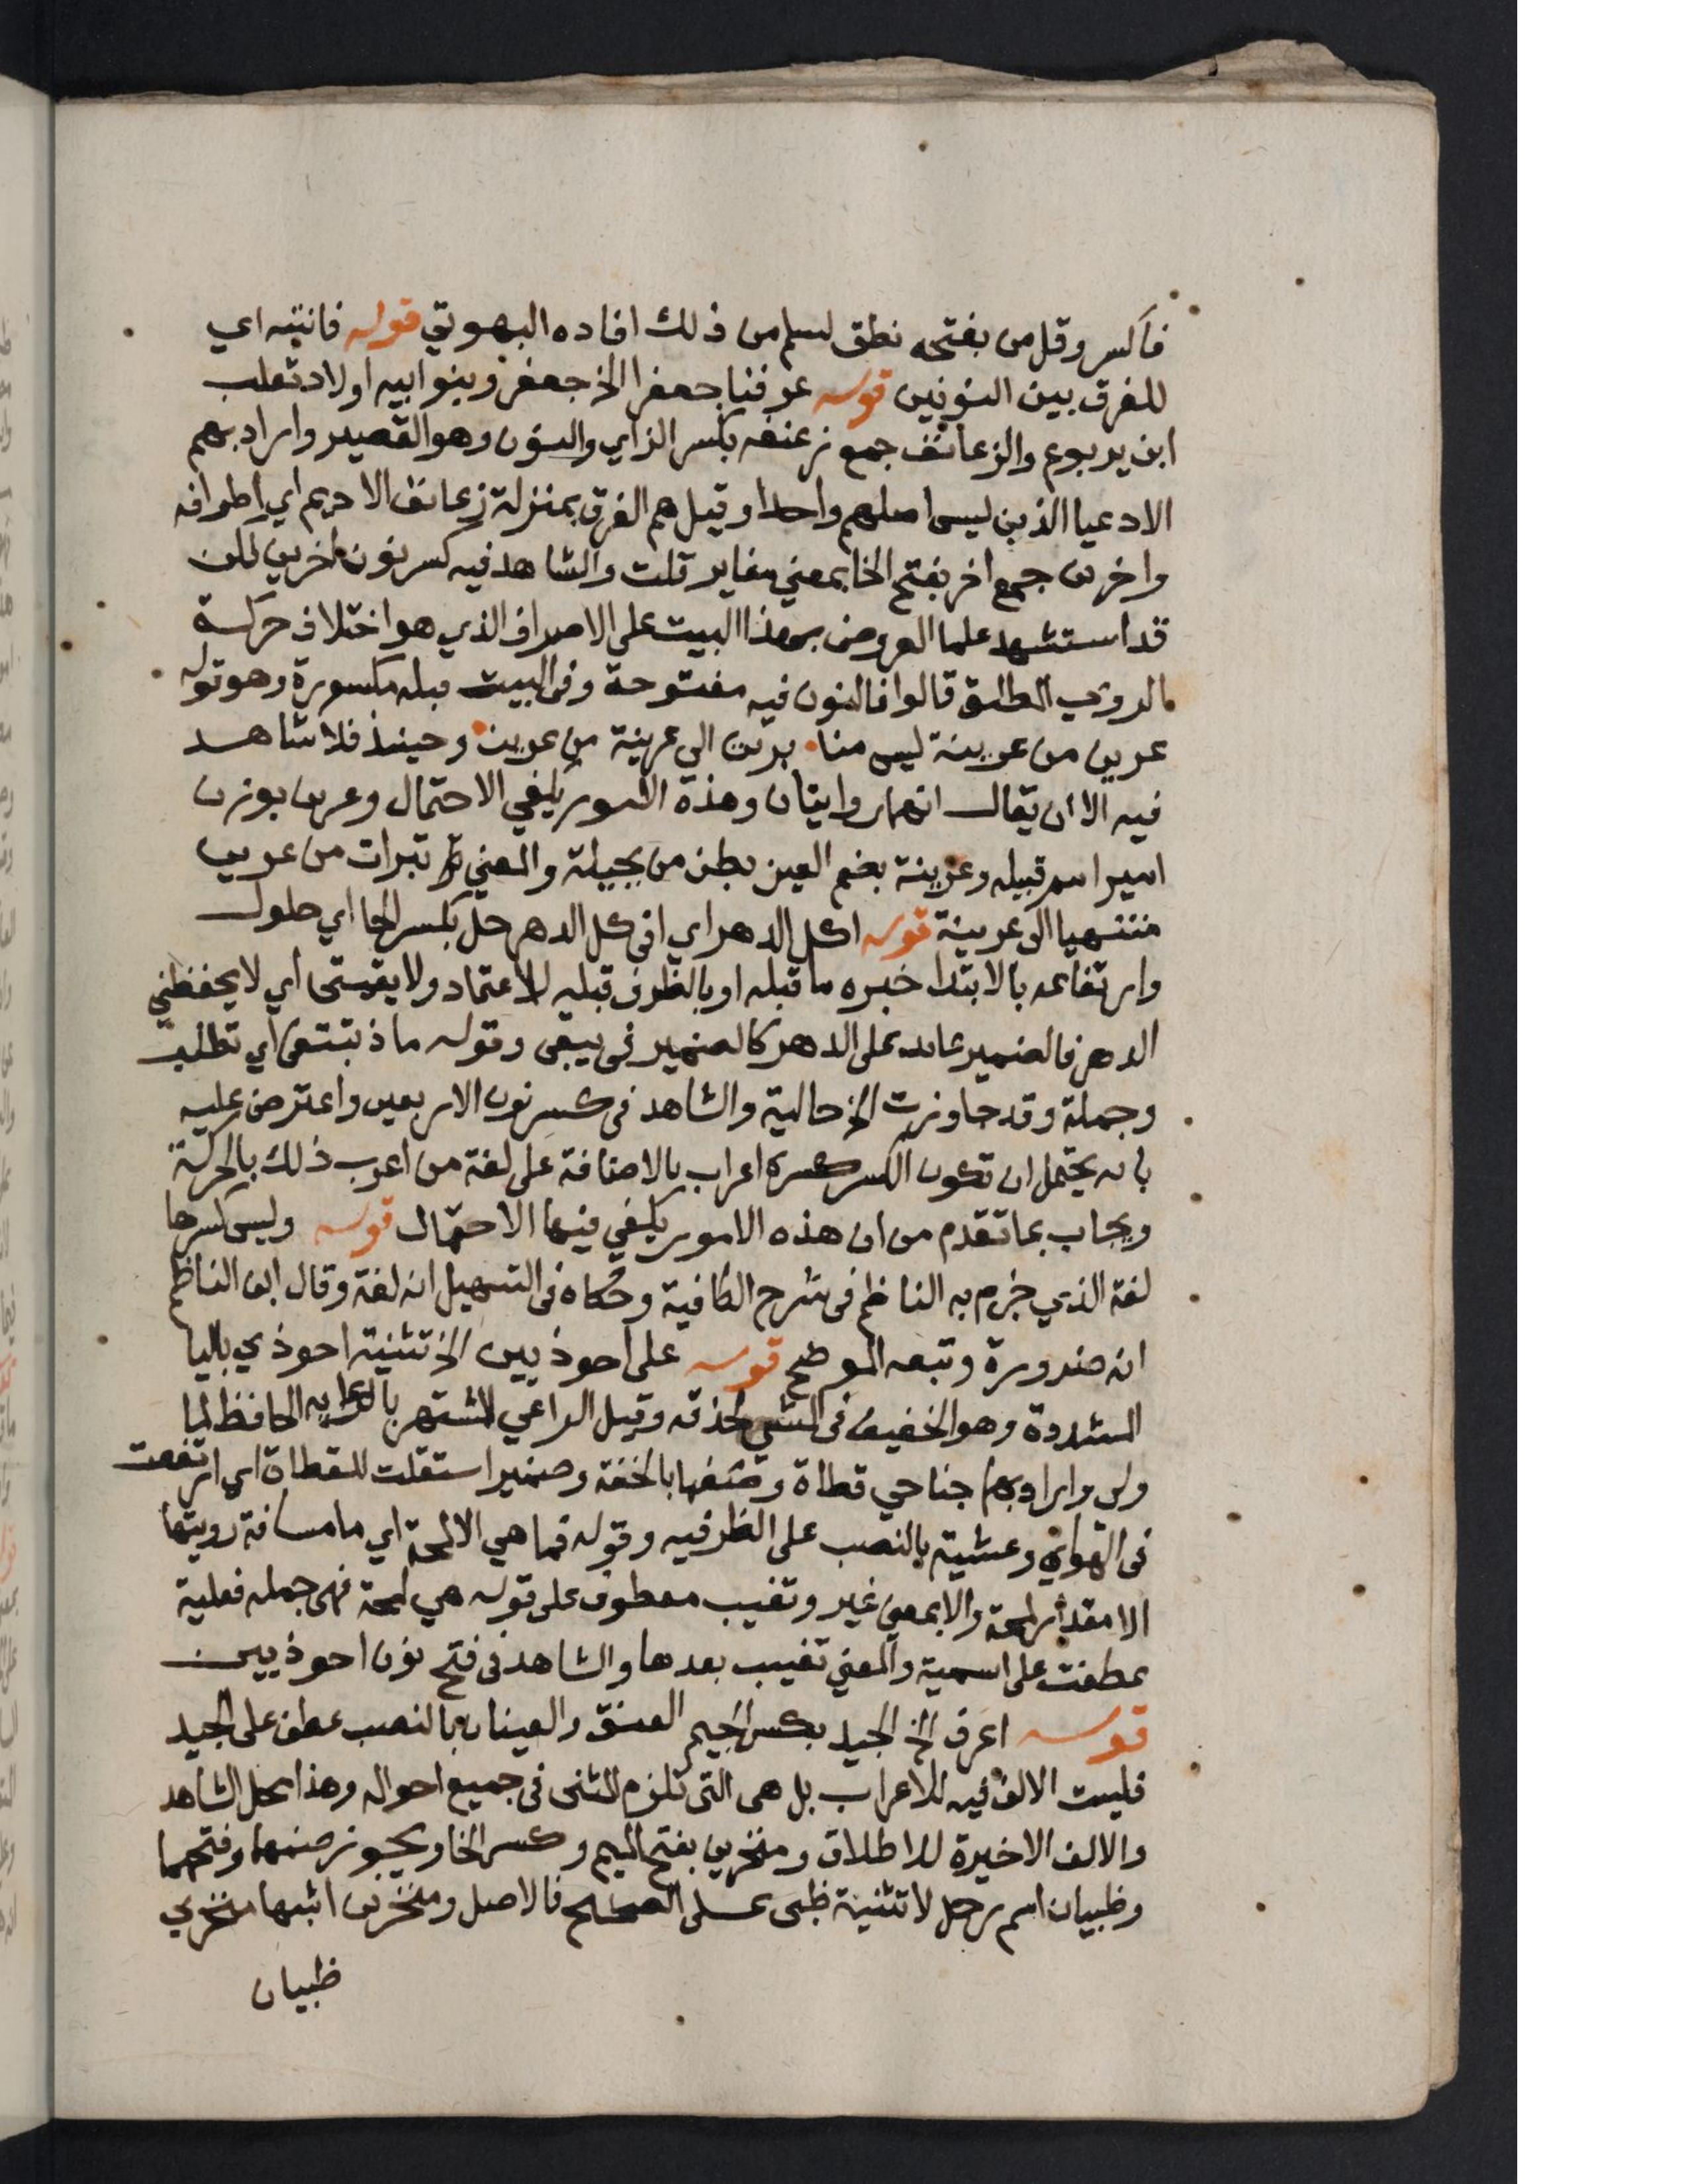 فاكسر وقل من بفتحه نطق لسلم من ذلك افاده البهوتي قوله فانتبه اي
للفرق بين النونين قوله عرفنا جعفرا الخ جعفر وبنوا ابيه اولاد ثعلب
ابن يربوع والزعانف جمع زعنفه بكسر الزاي والنون وهو القصير واراد بهم
الادعيا الذين ليس اصلهم واحدا وقيل هم الفرق بمنزلة زعانف الاديم اي اطرافه
واخرين جمع اخر بفتح الخا بمعني مغاير قلت والشاهد فيه كسر نون اخرين لكن
قد استشهد علما العروض بهذا البيت على الاصراف الذي هو اختلاف حركة
الروي المطلق قالوا فالنون فيه مفتوحة وفي البيت قبله مكسورة وهو قوله
عرين من عرينة ليس منا برئت الي عرينة من عرين وحينئذ فلا شاهد
فيه الا ان يقال انهما روايتان وهذه الامور يكفي الاحتمال وعرين بوزن
امير اسم قبيله وعرينة بضم العين بطن من بجيلة والمعني تبرات من عرين
منتهيا الى عرينة قوله اكل الدهر اي افي كل الدهر حل بكسر الحا اي حلول
وارتفاعه بالابتدا خبره ما قبله او بالظرف قبله للاعتماد ولا يقيني اي لا يحفظني
الدهر فالضمير عائد على الدهر كالضمير في يبقى وقوله ماذا تبتغى اي تطلب
وجملة وقد جاوزت الخ حالية والشاهد في كسر نون الاربعين واعترض عليه
بانه يحتمل ان تكون الكسر كسرة اعراب بالاضافة على لغة من اعرب ذلك بالحركة
ويجاب بما تقدم من ان هذه الامور يكفي فيها الاحتمال قوله وليس كسرها
لغة الذي جزم به الناظم في شرح الكافية وحكاه في التسهيل انه لغة وقال ابن الناظم
انه ضرورة وتبعه الموضح قوله على احوذيين الخ تثنية احوذي باليا
المشددة وهو الخفيف في الشي لحذقه وقيل الراعي المشتهر بالرعايه الحافظ لما
ولي واراد بهما جناحي قطاة وصفها بالخفة وضمير استقلت للقطاة اي ارتفعت
في الهواي وعشية بالنصب على الظرفيه وقوله فما هي الا لمحة اي ما مسافة رويتها
الا مقدار لمحة والا بمعني غير وتغيب معطوف على قوله هي لمحة فهي جمله فعلية
عطفت على اسمية والمعني تغيب بعدها والشاهد في فتح نون احوذيين
قوله اعرف الخ الجيد بكسر الجيم العنق والعينان بالنصب عطف على الجيد
فليست الالف فيه للاعراب بل هى التى تلزم المثنى في جميع احواله وهذا محل الشاهد
والالف الاخيرة للاطلاق ومنخرين بفتح الميم وكسر الخا ويجوز ضمهما وفتحهما
وظبيان اسم رجل لا تثنية ظبى على الصحيح فالاصل ومنخرين اشبها منخري
ظبيان